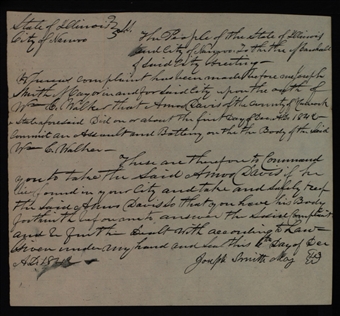 State of Illinois } ss.
City of Nauvoo
The People of the State of Illinois
and City of Nauvoo To the Marshall
of Said City Greeting—
Whereas complaint has been made before me Joseph
Smith Mayor in and for Said City upon the oath of
Wm C. Walker that Amos Davis of the County of Hancock
State aforesaid Did on or about the first Day of Dec AD 1842
Commit an Assault and Battery on the Body of the Said
Wm C. Walker—
These are therefore to Command
you to take the Said Amos Davis if he
be found in your City and safely keep
the Said Amos Davis So that you have his Body
forthwith before me to answer the Said Complaint
and be further Dealt with according to Law—
Given under my hand and seal this 6th Day of Dec
A.D. 1842
Joseph Smith May